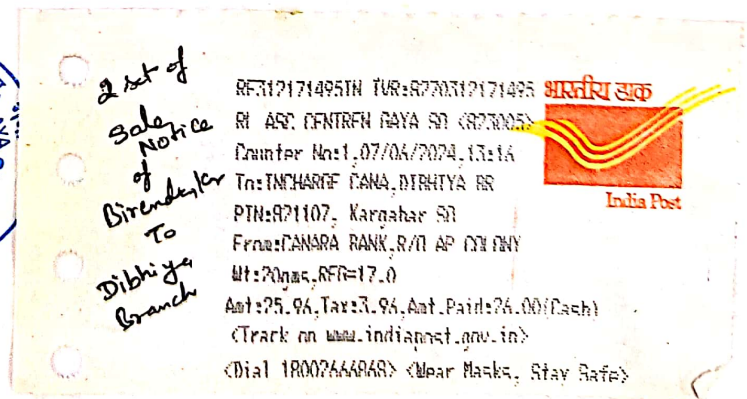 2 set of
Sale
Notice
of
Birendra
To
Dibhiya
Branch
RF312171495IN IVR:8270312171495
RL ASC CENTREN GAYA SO <823005>
Counter No:1,07/06/2024,13:16
To:INCHARGE CANA,DIBHIYA BR
PIN:821107, Kargahar SO
From:CANARA BANK,R/O AP COLONY
Wt:20gms,REG=17.0
Amt:25.96,Tax:3.96,Amt.Paid:26.00(Cash)
<Track on www.indiapost.gov.in>
<Dial 18002666868> <Wear Masks, Stay Safe>
भारतीय डाक
India Post